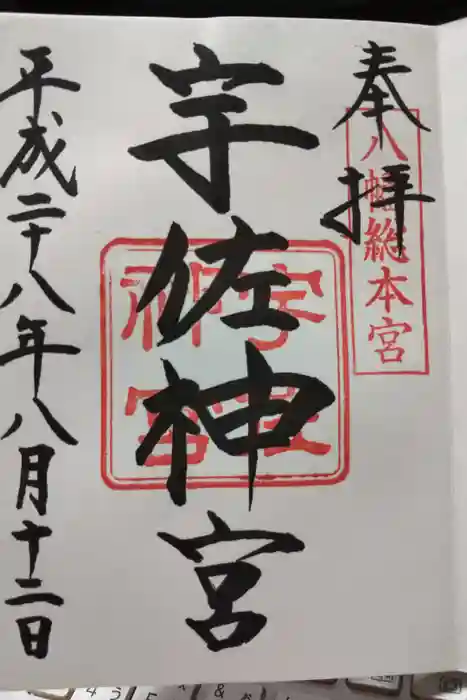 奉拝
八幡総本宮
宇佐神宮
宇佐神宮
平成二十八年八月十二日